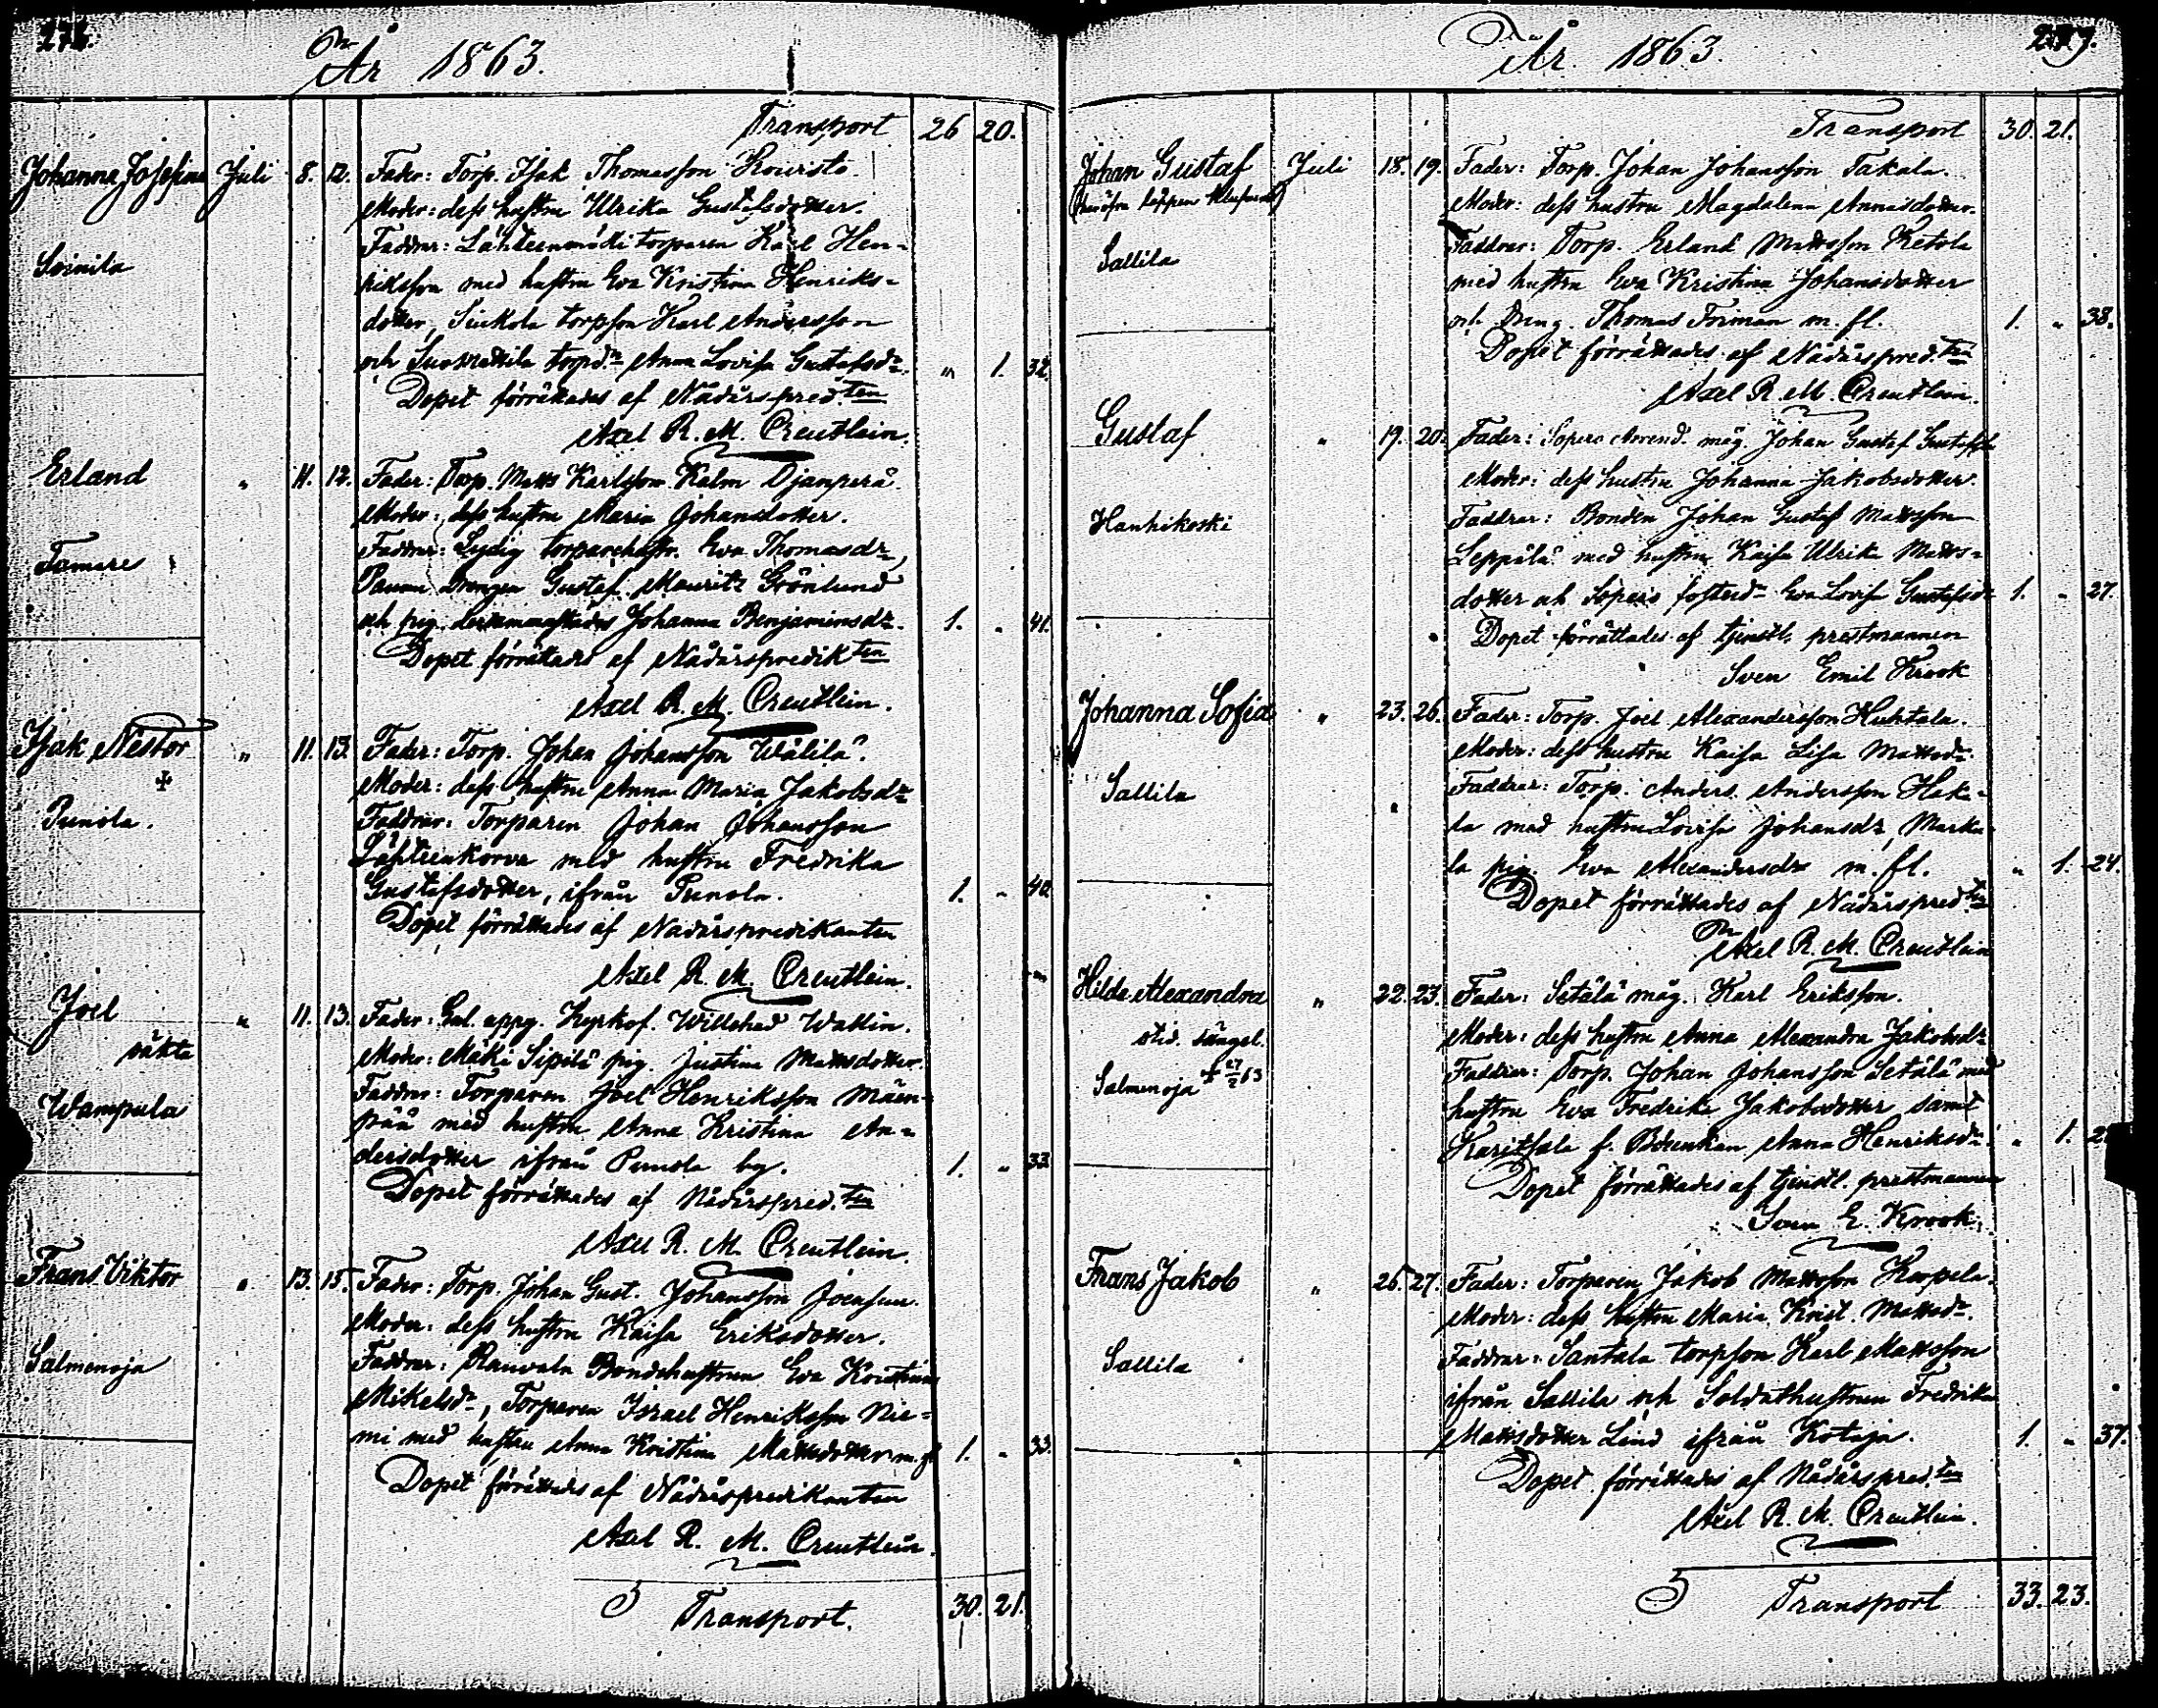 År 1863.
Transport 26 20.
Johanna Josefina Juli 8. 12. Fader: Torp. Isak Thomasson Koivisto.
Moder: dess hustru Ulrika Gustafsdotter.
Faddrar: Lähteenmäki torparen Karl Hen-
Soinila
riksson med hustru Eva Kristina Henriks-
dotter, Sinkola torpson Karl Andersson
och torpdr Anna Lovisa Gustafsdr. " 1. 32.
Dopet förrättades af Nådårspred.ten
Axel R. M. Creutlein.
Erland " 11. 12. Fader: Torp. Matts Karlsson Kalm Ojanperä.
Moder: dess hustru Maria Johansdotter.
Faddrar: Lydig torparehustr. Eva Thomasdr,
Tamare
Drengen Gustaf Mauritz Grönlund
och pig. dersammastädes Johanna Benjaminsdr. 1. " 41.
Dopet förrättades af Nådårspredikten
Axel R. M. Creutlein.
Isak Nestor " 11. 13. Fader: Torp. Johan Johansson Wälilä.
+
Moder: dess hustru Anna Maria Jakobsdr
Punola.
Faddrar: Torparen Johan Johansson
Lähteenkorva med hustru Fredrika
Gustafsdotter, ifrån Punola. 1. " 40.
Dopet förrättades af Nådårspredikanten
Axel R. M. Creutlein.
Joel " 11. 13. Fader: Enl. uppg. Kyrkof. Willehad Wallin.
oäkta
Moder: Mäki Sipilä pig. Justina Mattsdotter.
Wampula
Faddrar: Torparen Joel Henriksson Mäen-
pää med hustru Anna Kristina An-
dersdotter ifrån Punola by. 1. " 33.
Dopet förrättades af Nådårspred.ten
Axel R. M. Creutlein.
Frans Viktor " 13. 15. Fader: Torp. Johan Gust. Johansson Joensuu.
Moder: dess hustru Kaisa Eriksdotter.
Salmenoja
Faddrar: Rauvala Bondehustrun Eva Kristina
Mikelsdr, Torparen Israel Henriksson Nie-
mi med hustru Anna Kristina Mattsdotter m. fl. 1. " 33.
Dopet förrättades af Nådårspredikanten
Axel R. M. Creutlein.
5 Transport. 30. 21.
År. 1863.
Transport 30. 21.
Johan Gustaf Juli 18. 19. Fader: Torp. Johan Johansson Takala.
Moder: dess hustru Magdalena Annasdotter.
Sallila
Faddrar: Torp. Erland Mattsson Ketola
med hustru Eva Kristina Johansdotter
och Dreng. Thomas Forman m. fl. 1. " 38.
Dopet förrättades af Nådårspred.ten
Axel R. M. Creutlein.
Gustaf " 19. 20. Fader: Sopero Arrend. måg Johan Gustaf Gustafsson
Moder: dess hustru Johanna Jakobsdotter.
Hanhikoski
Faddrar: Bonden Johan Gustaf Mattsson
Leppälä med hustru Kaisa Ulrika Matts-
dotter och Sopero fosterdr Eva Lovisa Gustafsdr 1. " 27.
Dopet förrättades af tjenstl. prestmannen
Sven Emil Krook
Johanna Sofia " 23. 26. Fader: Torp. Joel Alexandersson Huhtala.
Moder: dess hustru Kaisa Lisa Mattsdr.
Sallila
Faddrar: Torp. Anders Andersson Haka-
la med hustru Lovisa Johansdr, Marku-
la pig. Eva Alexandersdr m. fl. " 1. 24.
Dopet förrättades af Nådårspredten
Axel R. M. Creutlein
Hilda Alexandra " 22. 23. Fader: Setälä måg. Karl Eriksson.
Moder: dess hustru Anna Alexandra Jakobsdr
Salmenoja + 27/2 63
Faddrar: Torp. Johan Johansson Setälä med
hustru Eva Fredrika Jakobsdotter samt
f. Anna Henriksdr. " 1.
Dopet förrättades af tjenstl. prestmannen
Sven E. Krook.
Frans Jakob " 26. 27. Fader: Torparen Jakob Mattsson Korpela.
Moder: dess hustru Maria Krist. Mattsdr.
Sallila
Faddrar: Santala torpson Karl Mattsson
ifrån Sallila och Soldathustrun Fredrika
Mattsdotter Lind ifrån Kotoja. 1. " 37.
Dopet förrättades af Nådårspred.ten
Axel R. M. Creutlein.
5 Transport 33. 23.